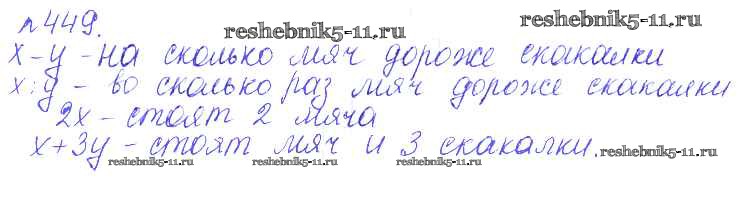 №449. reshebnik5-11.ru
x-y - на сколько мяч дороже скакалки
x:y - во сколько раз мяч дороже скакалки
2x - стоят 2 мяча
x+3y - стоят мяч и 3 скакалки.
reshebnik5-11.ru reshebnik5-11.ru reshebnik5-11.ru reshebnik5-11.ru